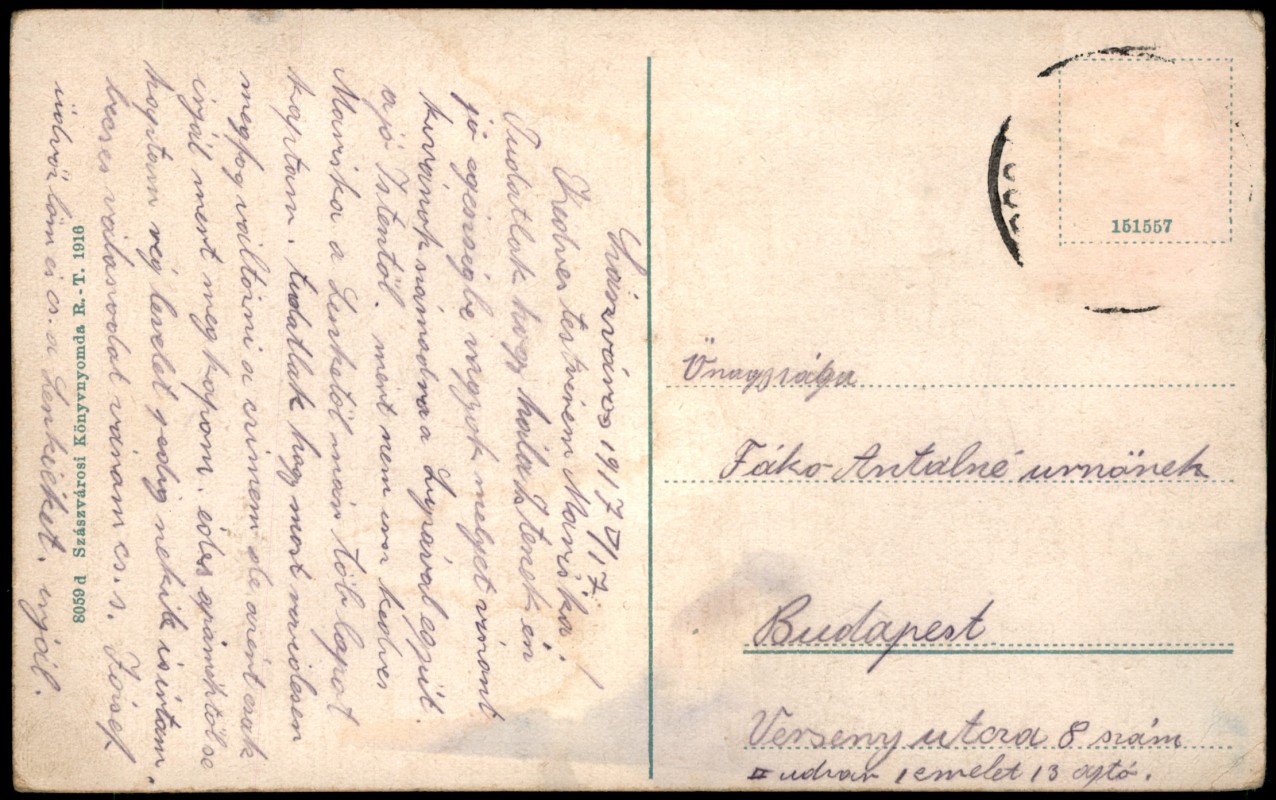 Szászváros 1917 V/17
Kedves testvérem Mariska!
Tudatlak hogy hála Istenek én
jó egésségbe vagyok melyet viszont
kivánok számodra a Lajosával egyűt.
a jó Istentől. mért nem irsz kedves
Mariska a Lenkétől már töb lapot
kaptam. tudatlak hogy most rövidesen
megfog változni a czimem de azért csak
irjál mert meg kapom. édes apámktól se
kaptam rég levelet pedig nekik is irtam.
becses válaszodat várom cs. s. József
üdvözlöm és cs. a Lenkééket. irjál.
8059 d Szászvárosi Könyvnyomda R.-T. 1916
151557
Őnagysága
Fákó Antalné urnőnek
Budapest
Verseny utcza 8 szám
II udvar 1 emelet 13 ajtó.